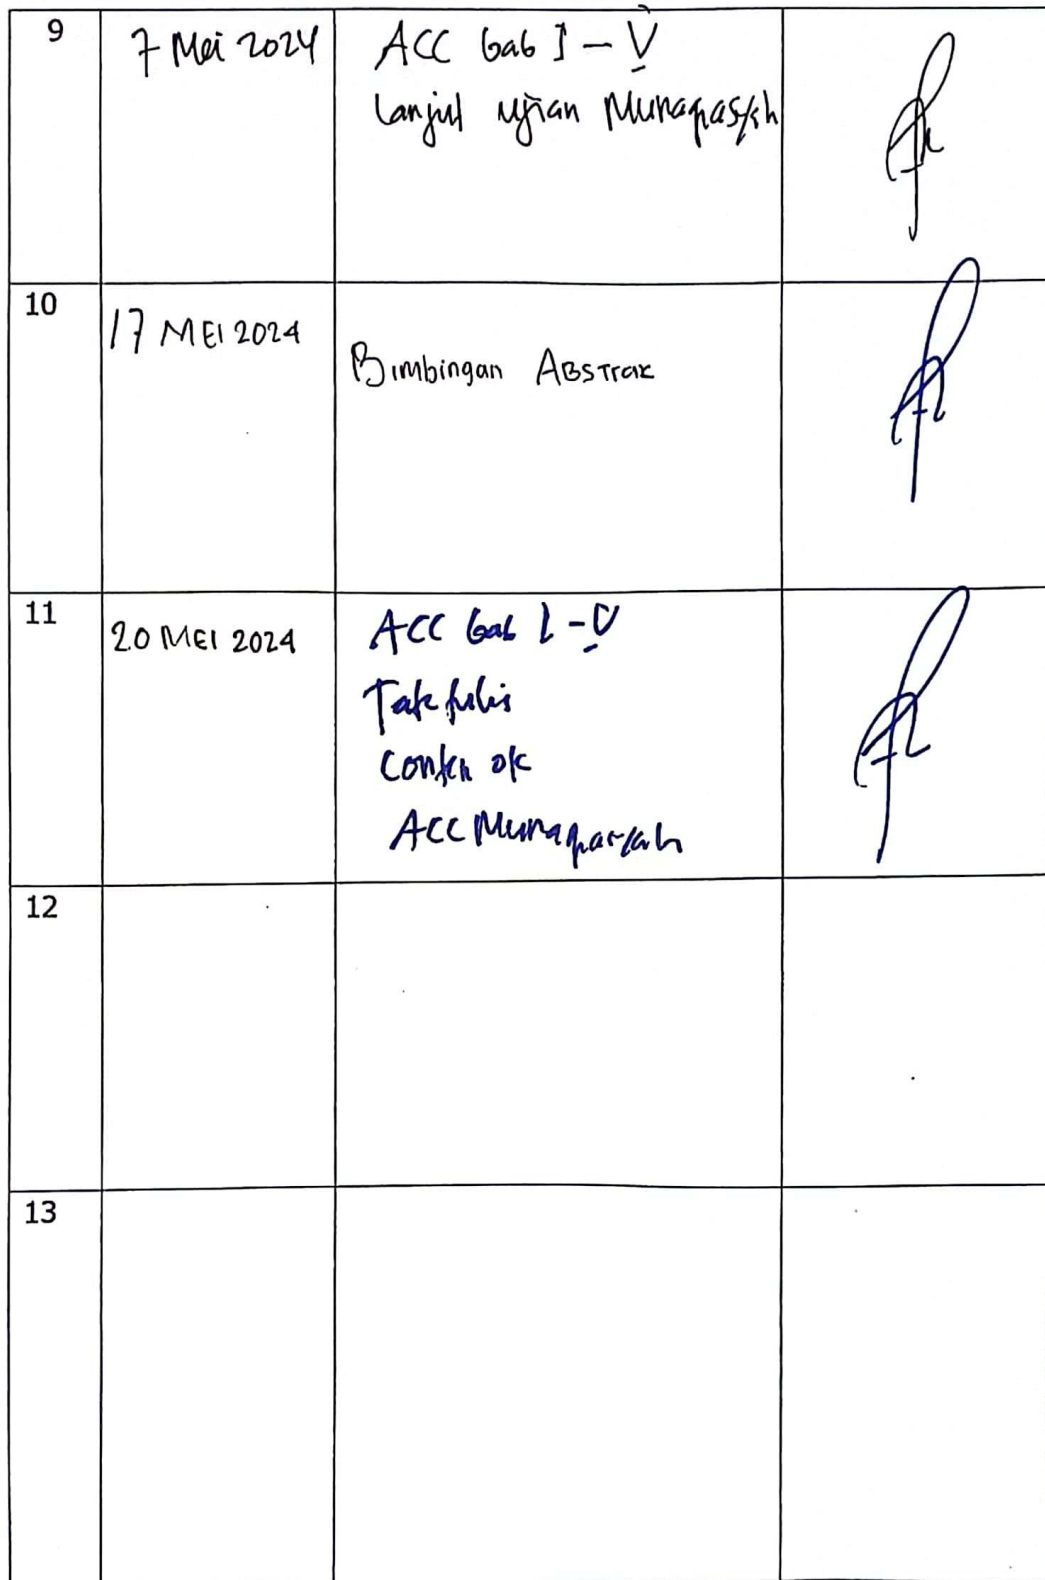 9
7 Mei 2024
ACC bab I – V
Lanjut ujian Munaqasyah
10
17 MEI 2024
Bimbingan ABSTRAK
11
20 MEI 2024
ACC bab I - V
Tak tulis
Conten ok
ACC Munaqasyah
12
13